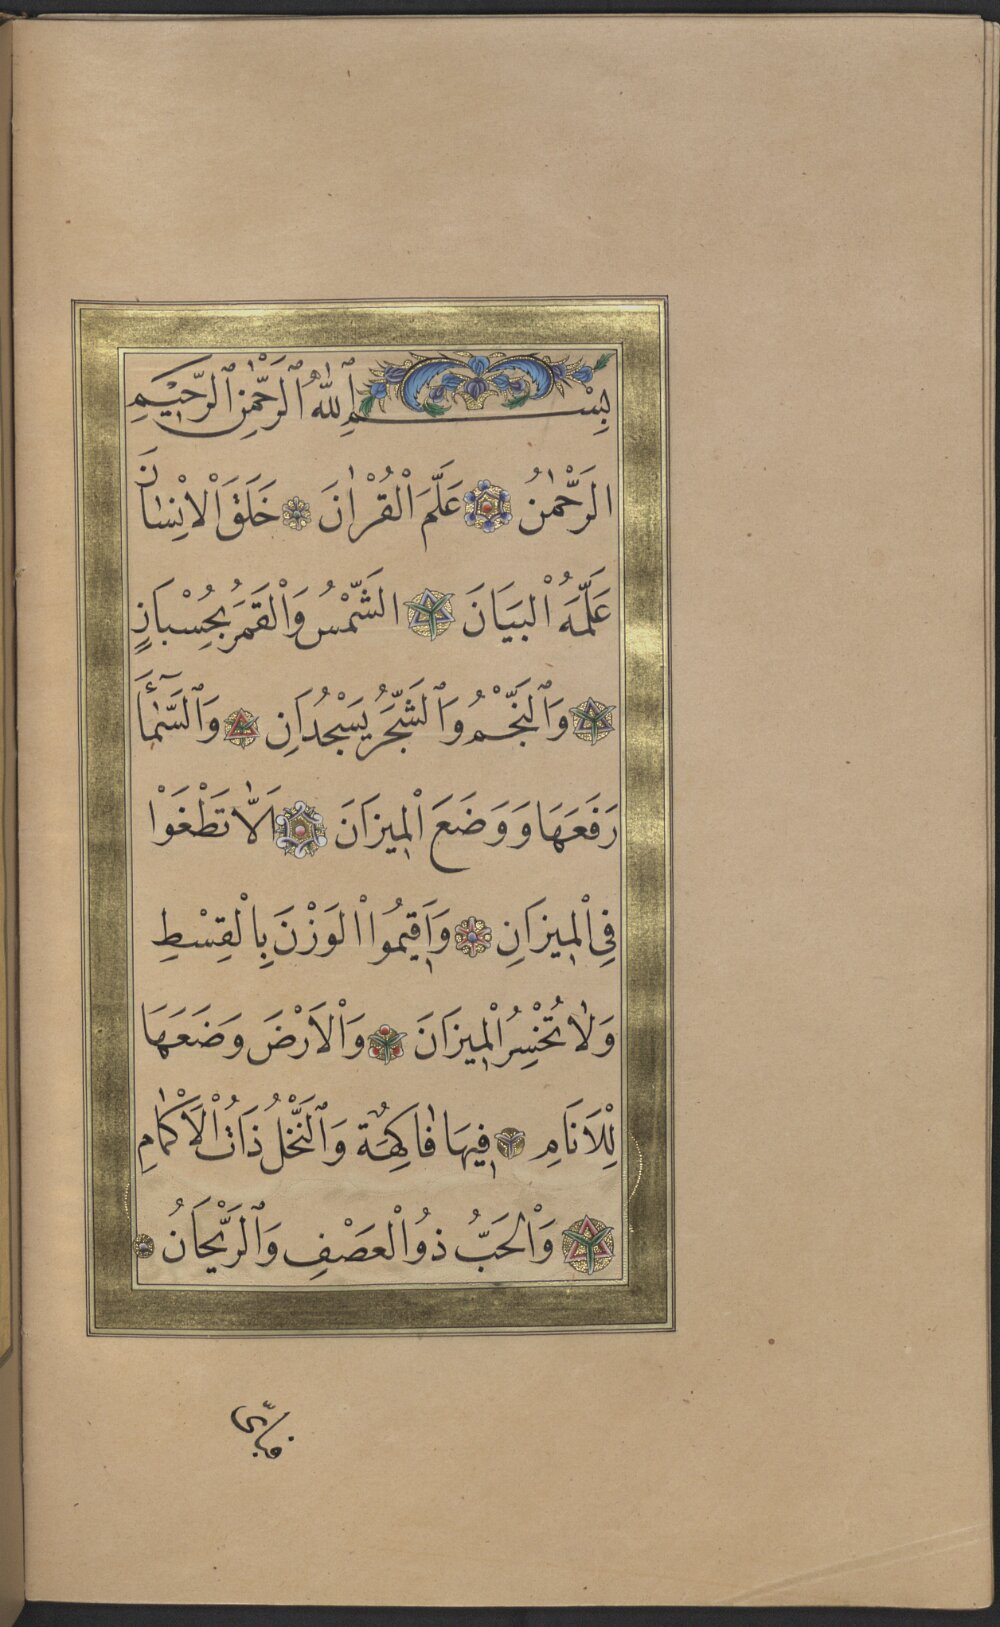 بِسْمِ ٱللّٰهِ ٱلرَّحْمٰنِ ٱلرَّحِيْمِ
الرَّحْمٰنُ عَلَّمَ الْقُرْاٰنَ خَلَقَ الْاِنْسَانَ
عَلَّمَهُ الْبَيَانَ الشَّمْسُ وَالْقَمَرُ بِحُسْبَانٍ
وَٱلنَّجْمُ وَٱلشَّجَرُ يَسْجُدَانِ وَٱلسَّمَٓاءَ
رَفَعَهَا وَوَضَعَ الْمِيزَانَ اَلَّا تَطْغَوْا
فِي الْمِيزَانِ وَاَقِيمُوا الْوَزْنَ بِالْقِسْطِ
وَلَا تُخْسِرُ الْمِيزَانَ وَالْاَرْضَ وَضَعَهَا
لِلْاَنَامِ فِيهَا فَاكِهَةٌ وَٱلنَّخْلُ ذَاتُ الْاَكْمَامِ
وَالْحَبُّ ذُو الْعَصْفِ وَٱلرَّيْحَانُ
فبأي